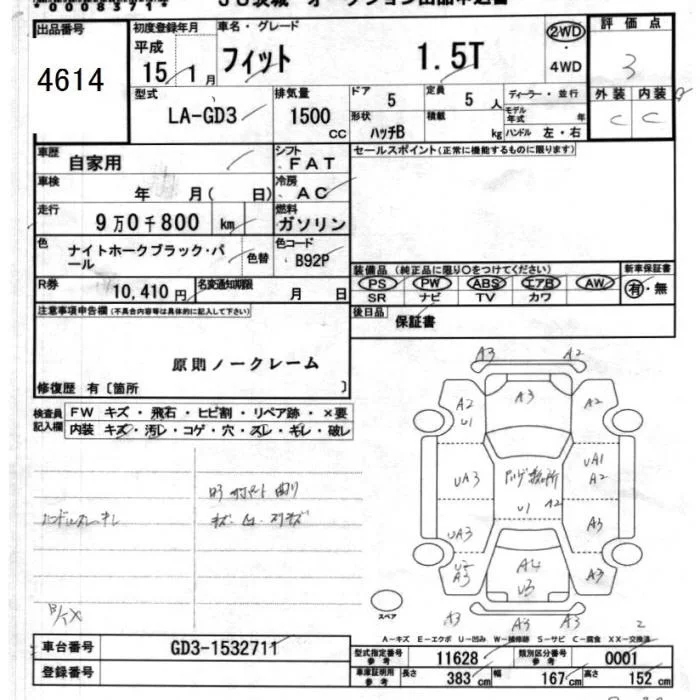 出品番号
4614
初度登録年月
平成
15年 1月
車名・グレード
フィット 1.5T
2WD
・
4WD
評価点
3
外装 内装
C C
型式
LA-GD3
排気量
1500
CC
ドア
5
定員
5人
ディーラー・並行
形状
ハッチB
積載
kg
モデル年式 年
ハンドル 左・右
車歴
自家用
シフト
FAT
セールスポイント(正常に機能するものに限ります)
車検
年 月( 日)
冷房
AC
走行
9万0千800 km
燃料
ガソリン
色
ナイトホークブラック・パール
色替
色コード
B92P
装備品(純正品に限り○をつけてください)
新車保証書
PS PW ABS エアB AW
有・無
SR ナビ TV カワ
R券
10,410円
名変通知期限
月 日
後日品
保証書
注意事項申告欄(不具合内容等は具体的に記入して下さい)
原則ノークレーム
修復歴 有〔箇所 〕
検査員記入欄
FW キズ・飛石・ヒビ割・リペア跡・×要
内装 キズ・汚レ・コゲ・穴・スレ・キレ・破レ
A3 A2
A3
A2
U1
A2
UA3
UA1
A2
U1 A2
UA3
A3
A3
A4
U3
A3
A3 A3 A3
2
スペア
A-キズ E-エクボ U-凹み W-補修跡 S-サビ C-腐食 XX-交換済
車台番号
GD3-1532711
登録番号
型式指定番号
参考
11628
類別区分番号
参考
0001
車庫証明用
参考
長さ
383cm
幅
167cm
高さ
152cm